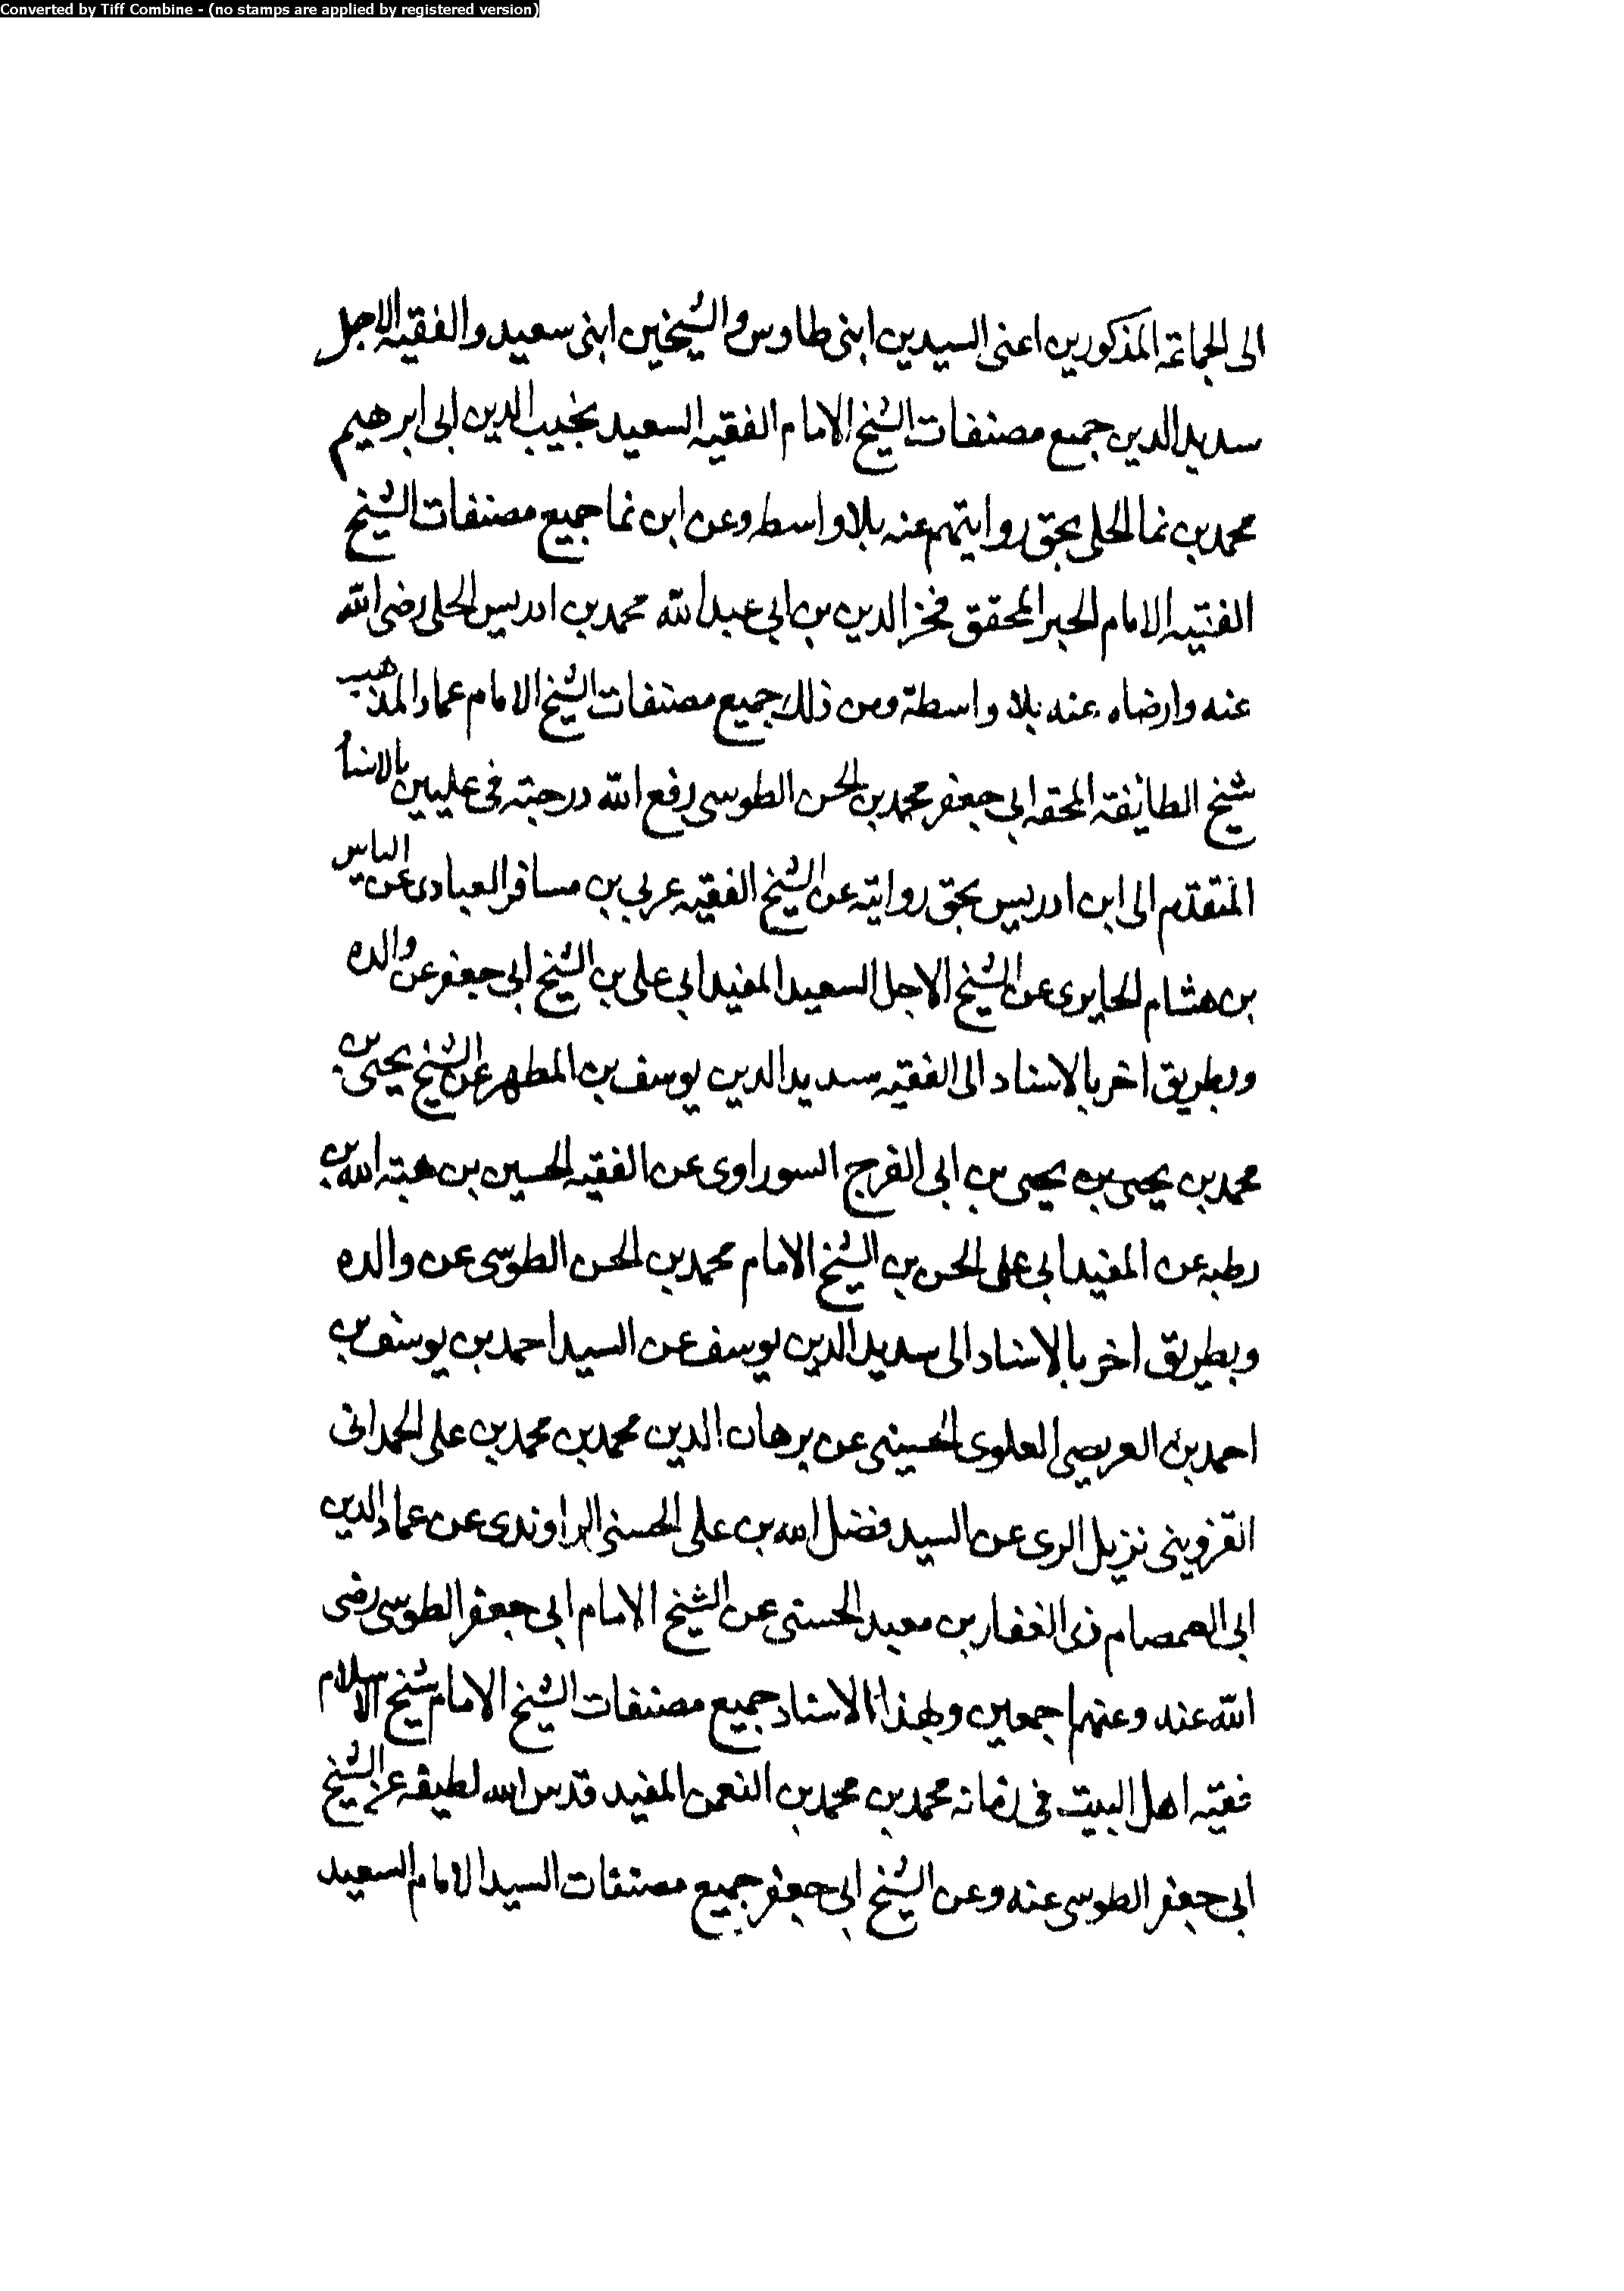 Converted by Tiff Combine - (no stamps are applied by registered version)
الى الجماعة المذكورين اعنى السيدين ابنى طاوس والشيخين ابنى سعيد والفقيه الاجل
سديد الدين جميع مصنفات الشيخ الامام الفقيه السعيد نجيب الدين ابى ابرهيم
محمد بن نما الحلى بحق روايتهم عنه بلا واسطه وعن ابن نما جميع مصنفات الشيخ
الفقيه الامام الحبر المحقق فخر الدين بن ابي عبد الله محمد بن ادريس الحلى رضى الله
عنه وارضاه عنه بلا واسطة ومن ذلك جميع مصنفات الشيخ الامام عماد المذهب
شيخ الطائفة المحقه ابى جعفر محمد بن الحسن الطوسى رفع الله درجته فى عليين بالاسنا
المتقدم الى ابن ادريس بحق روايته عن الشيخ الفقيه عربي بن مسافر العبادى عن الياس
بن هشام الحايرى عن الشيخ الاجل السعيد المفيد ابي على بن الشيخ ابى جعفر عن والده
وبطريق اخر بالاسناد الى الفقيه سديد الدين يوسف بن المطهر عن الشيخ يحيى بن
محمد بن يحيى بن يحيى بن ابى الفرج السوراوى عن الفقيه الحسين بن هبة الله بن
رطبه عن المفيد ابي على الحسن بن الشيخ الامام محمد بن الحسن الطوسى عن والده
وبطريق اخر بالاسناد الى سديد الدين يوسف عن السيد احمد بن يوسف بن
احمد بن العريضى العلوى الحسينى عن برهان الدين محمد بن محمد بن على الحمدانى
القزوينى نزيل الرى عن السيد فضل الله بن على الحسنى الراوندى عن عماد الدين
ابى الصمصام ذى الفقار بن معبد الحسنى عن الشيخ الامام ابى جعفر الطوسى رضى
الله عنه وعنهم اجمعين وبهذا الاسناد جميع مصنفات الشيخ الامام شيخ الاسلام
فقيه اهل البيت فى زمانه محمد بن محمد بن النعمن المفيد قدس الله لطيفه عن الشيخ
ابى جعفر الطوسى عنه وعن الشيخ ابى جعفر جميع مصنفات السيد الامام السعيد